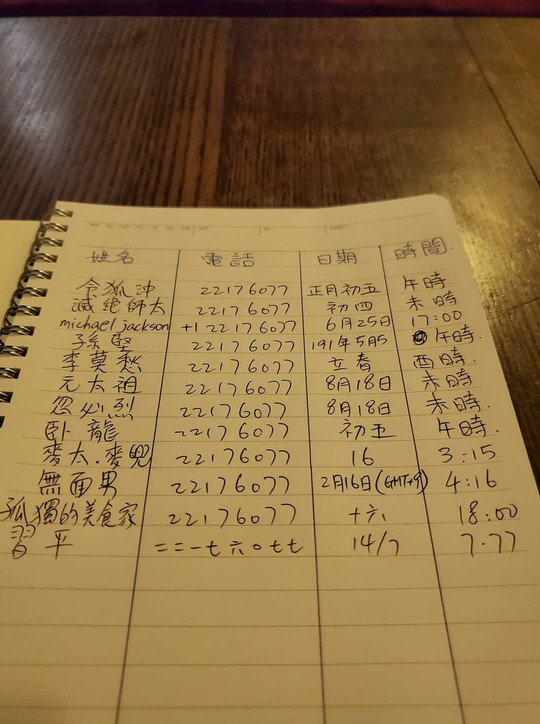 姓名 電話 日期 時間
令狐沖 22176077 正月初五 午時
滅絕師太 22176077 初四 未時
michael jackson +1 22176077 6月25日 17:00
孫堅 22176077 191年5月5 午時
李莫愁 22176077 立春 酉時
元太祖 22176077 8月18日 未時
忽必烈 22176077 8月18日 未時
臥龍 22176077 初五 午時
麥太.麥兜 22176077 16 3:15
無面男 22176077 2月16日(GMT+9) 4:16
孤獨的美食家 22176077 十六 18:00
習平 二二一七六〇七七 14/7 7.77